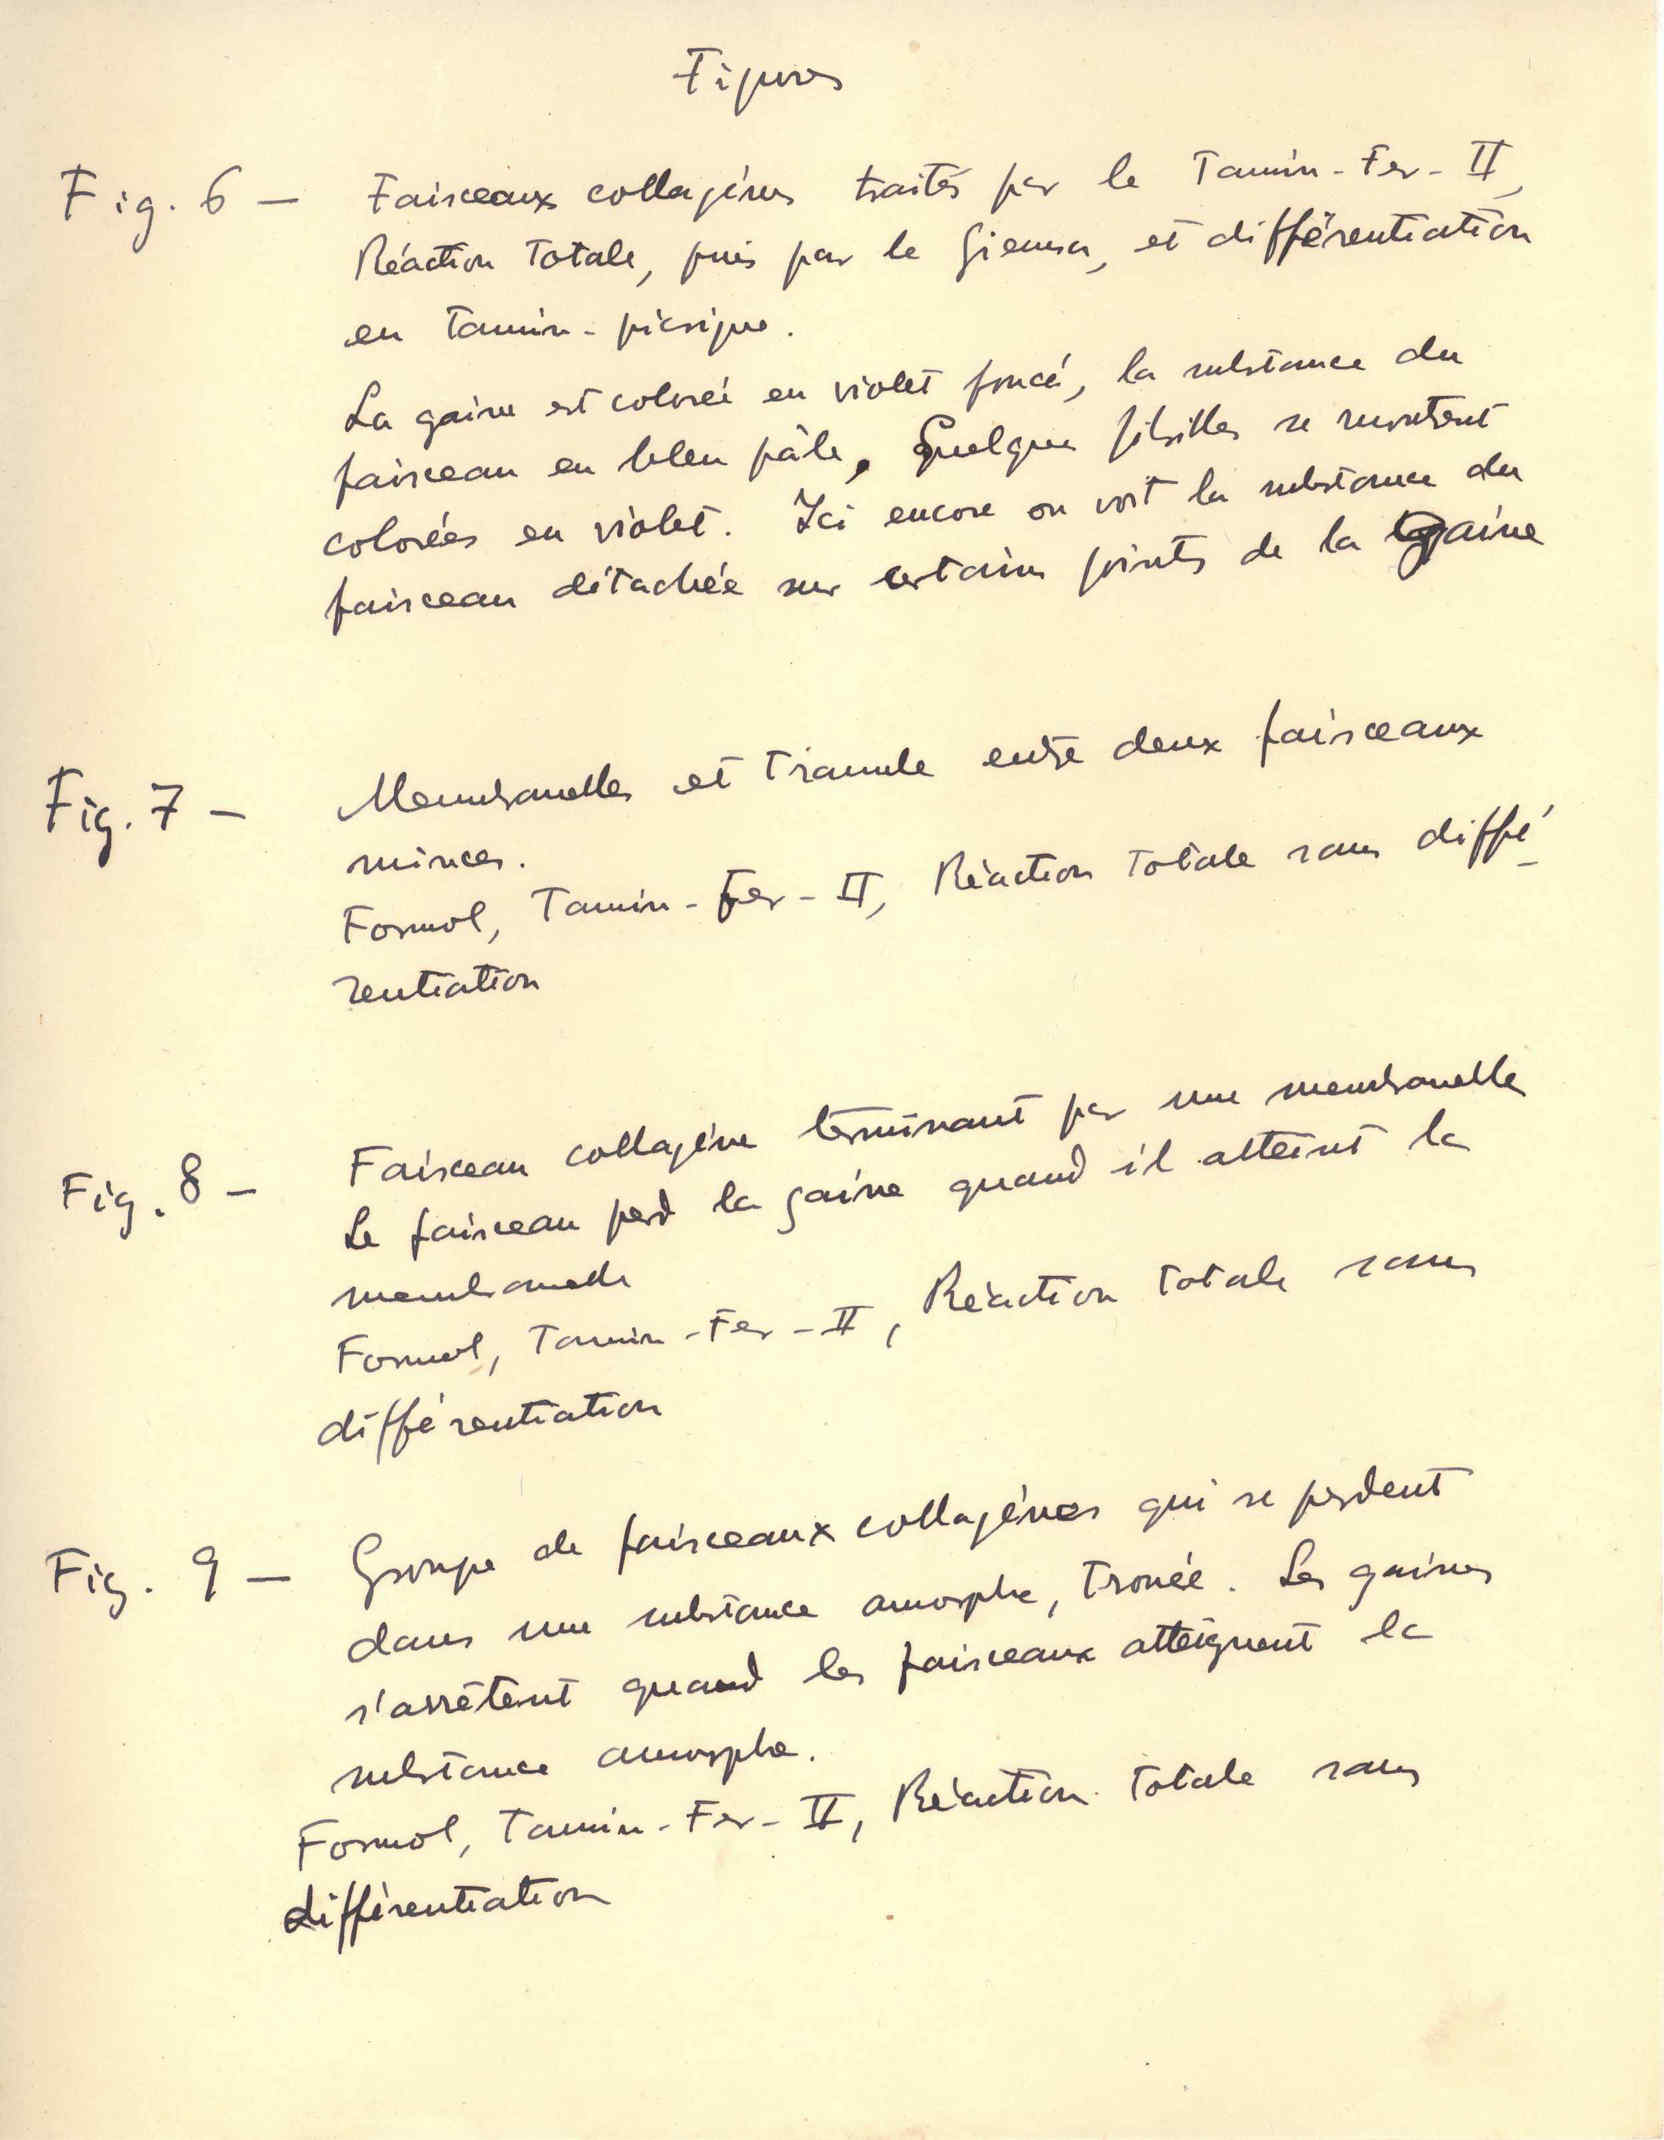 Figures
Fig. 6 — Faisceaux collagènes traités par le Tannin-Fer-II,
Réaction Totale, puis par le Giemsa, et différentiation
en Tannin-picrique.
La gaine est colorée en violet foncé, la substance du
faisceau en bleu pâle. Quelques fibrilles se montrent
colorées en violet. Ici encore on voit la substance du
faisceau détachée sur certains points de la gaine
Fig. 7 — Membranelles et Tramule entre deux faisceaux
minces.
Formol, Tannin-Fer-II, Réaction Totale sans diffé-
rentiation
Fig. 8 — Faisceau collagène terminant par une membranelle
Le faisceau perd la gaine quand il atteint la
membranelle
Formol, Tannin-Fer-II, Réaction Totale sans
différentiation
Fig. 9 — Groupe de faisceaux collagènes qui se perdent
dans une substance amorphe, trouée. Les gaines
s'arrêtent quand les faisceaux atteignent la
substance amorphe.
Formol, Tannin-Fer-II, Réaction Totale sans
différentiation